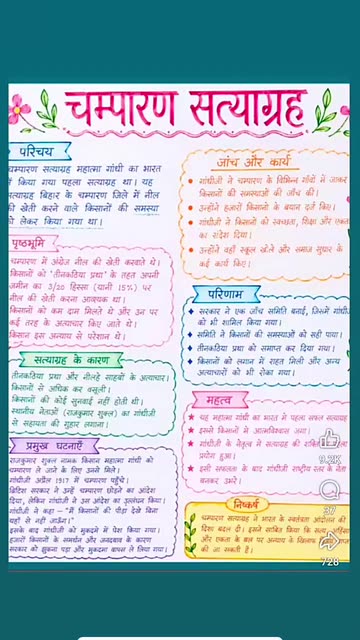 चम्पारण सत्याग्रह
परिचय
चम्पारण सत्याग्रह महात्मा गांधी का भारत
में किया गया पहला सत्याग्रह था। यह
सत्याग्रह बिहार के चम्पारण जिले में नील
की खेती करने वाले किसानों की समस्या
को लेकर किया गया था।
पृष्ठभूमि
चम्पारण में अंग्रेज नील की खेती करवाते थे।
किसानों को 'तीनकठिया प्रथा' के तहत अपनी
जमीन का 3/20 हिस्सा (यानी 15%) पर
नील की खेती करना आवश्यक था।
किसानों को कम दाम मिलते थे और उन पर
कई तरह के अत्याचार किए जाते थे।
किसान इस अन्याय से परेशान थे।
सत्याग्रह के कारण
तीनकठिया प्रथा और नीलहे साहबों के अत्याचार।
किसानों से अधिक कर वसूली।
किसानों की कोई सुनवाई नहीं होती थी।
स्थानीय नेताओं (राजकुमार शुक्ल) का गांधीजी
से सहायता की गुहार लगाना।
प्रमुख घटनाएँ
राजकुमार शुक्ल नामक किसान महात्मा गांधी को
चम्पारण ले जाने के लिए उनसे मिले।
गांधीजी अप्रैल 1917 में चम्पारण पहुँचे।
ब्रिटिश सरकार ने उन्हें चम्पारण छोड़ने का आदेश
दिया, लेकिन गांधीजी ने उस आदेश का उल्लंघन किया।
गांधीजी ने कहा – "मैं किसानों की पीड़ा देखे बिना
यहाँ से नहीं जाऊँगा।"
इसके बाद गांधीजी को मुकदमे में पेश किया गया।
हजारों किसानों के समर्थन और जनदबाव के कारण
सरकार को झुकना पड़ा और मुकदमा वापस ले लिया गया।
जाँच और कार्य
गांधीजी ने चम्पारण के विभिन्न गाँवों में जाकर
किसानों की समस्याओं की जाँच की।
उन्होंने हजारों किसानों के बयान दर्ज किए।
गांधीजी ने किसानों को स्वच्छता, शिक्षा और एकता
का संदेश दिया।
उन्होंने वहाँ स्कूल खोले और समाज सुधार के
कई कार्य किए।
परिणाम
सरकार ने एक जाँच समिति बनाई, जिसमें गांधीजी
को भी शामिल किया गया।
समिति ने किसानों की समस्याओं को सही पाया।
तीनकठिया प्रथा को समाप्त कर दिया गया।
किसानों को लगान में राहत मिली और अन्य
अत्याचारों को भी रोका गया।
महत्व
यह महात्मा गांधी का भारत में पहला सफल सत्याग्रह
इससे किसानों में आत्मविश्वास जगा।
गांधीजी के नेतृत्व में सत्याग्रह की शक्ति
प्रयोग हुआ।
इसी सफलता के बाद गांधीजी राष्ट्रीय स्तर के नेता
बनकर उभरे।
निष्कर्ष
चम्पारण सत्याग्रह ने भारत के स्वतंत्रता आंदोलन की
दिशा बदल दी। इसने साबित किया कि सत्य, अहिंसा
और एकता के बल पर अन्याय के खिलाफ
की जा सकती है।
9.2K
37
728